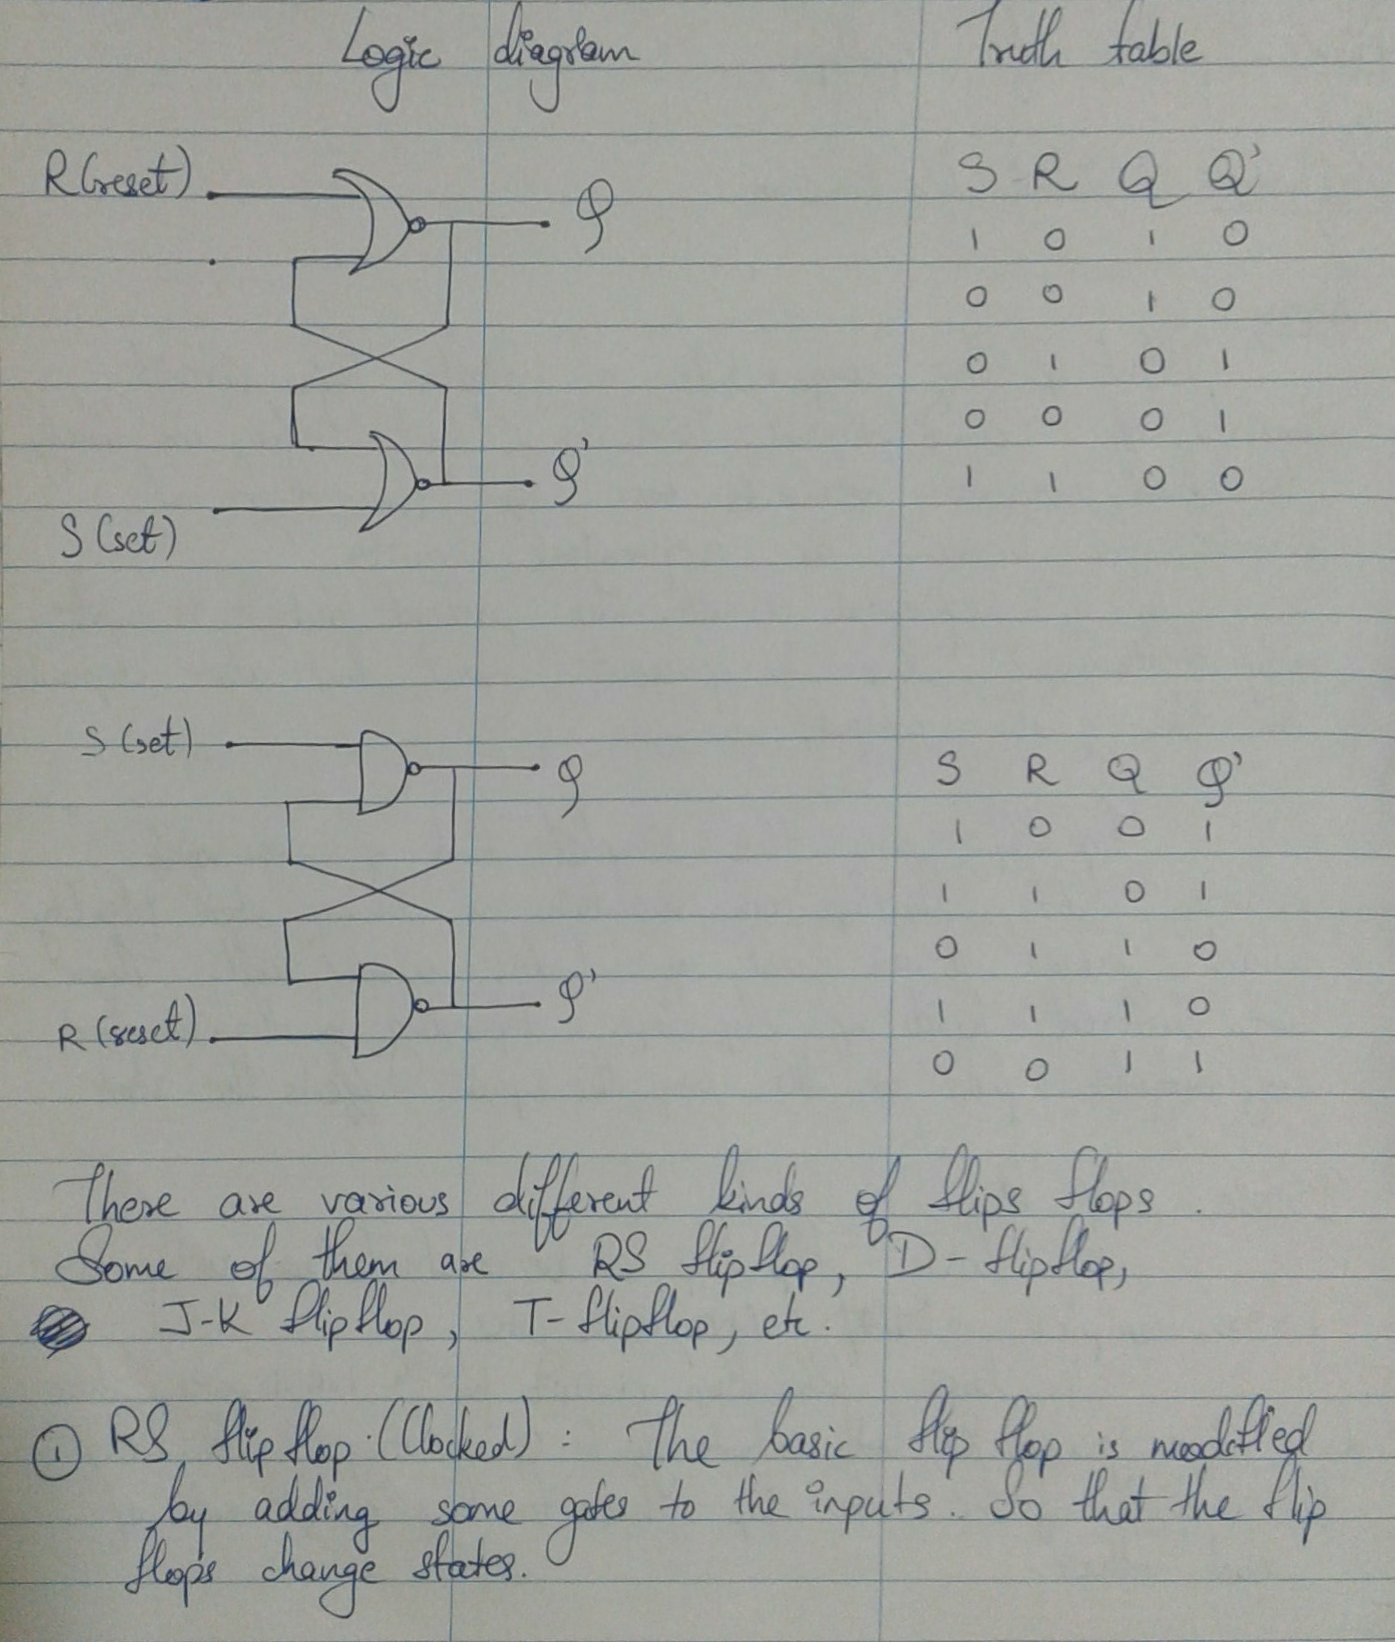 Logic diagram Truth table
R(reset) Q S R Q Q'
1 0 1 0
0 0 1 0
0 1 0 1
0 0 0 1
Q' 1 1 0 0
S (set)
S (set) Q S R Q Q'
1 0 0 1
1 1 0 1
0 1 1 0
R (reset) Q' 1 1 1 0
0 0 1 1
There are various different kinds of flips flops.
Some of them are RS flipflop, D-flipflop,
J-K flipflop, T-flipflop, etc.
① RS flip flop (Clocked) : The basic flip flop is moodified
by adding some gates to the inputs. So that the flip
flops change states.